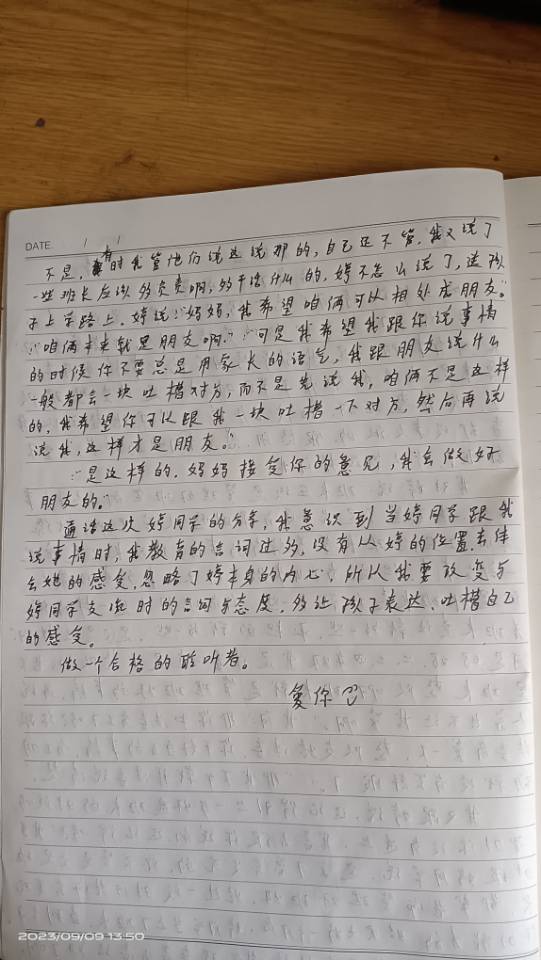 DATE. / /
不是,有时我管他们说这说那的,自己还不管。我又说了
一些班长应该多负责啊,多干活什么的,婷不怎么说了,送孩
子上学路上,婷说:“妈妈,我希望咱俩可以相处成朋友。”
“咱俩本来就是朋友啊。”“可是我希望我跟你说事情
的时候你不要总是用家长的语气,我跟朋友说什么
一般都会一块吐槽对方,而不是先说我,咱俩不是这样
的,我希望你可以跟我一块吐槽一下对方,然后再说
说我,这样才是朋友。”
“是这样的,妈妈接受你的意见,我会做好
朋友的。”
通过这次婷同学的分享,我意识到当婷同学跟我
说事情时,我教育的言词过多,没有从婷的位置去体
会她的感受,忽略了婷本身的内心,所以我要改变与
婷同学交流时的言词与态度,多让孩子表达、吐槽自己
的感受。
做一个合格的聆听者。
爱你
2023/09/09 13:50